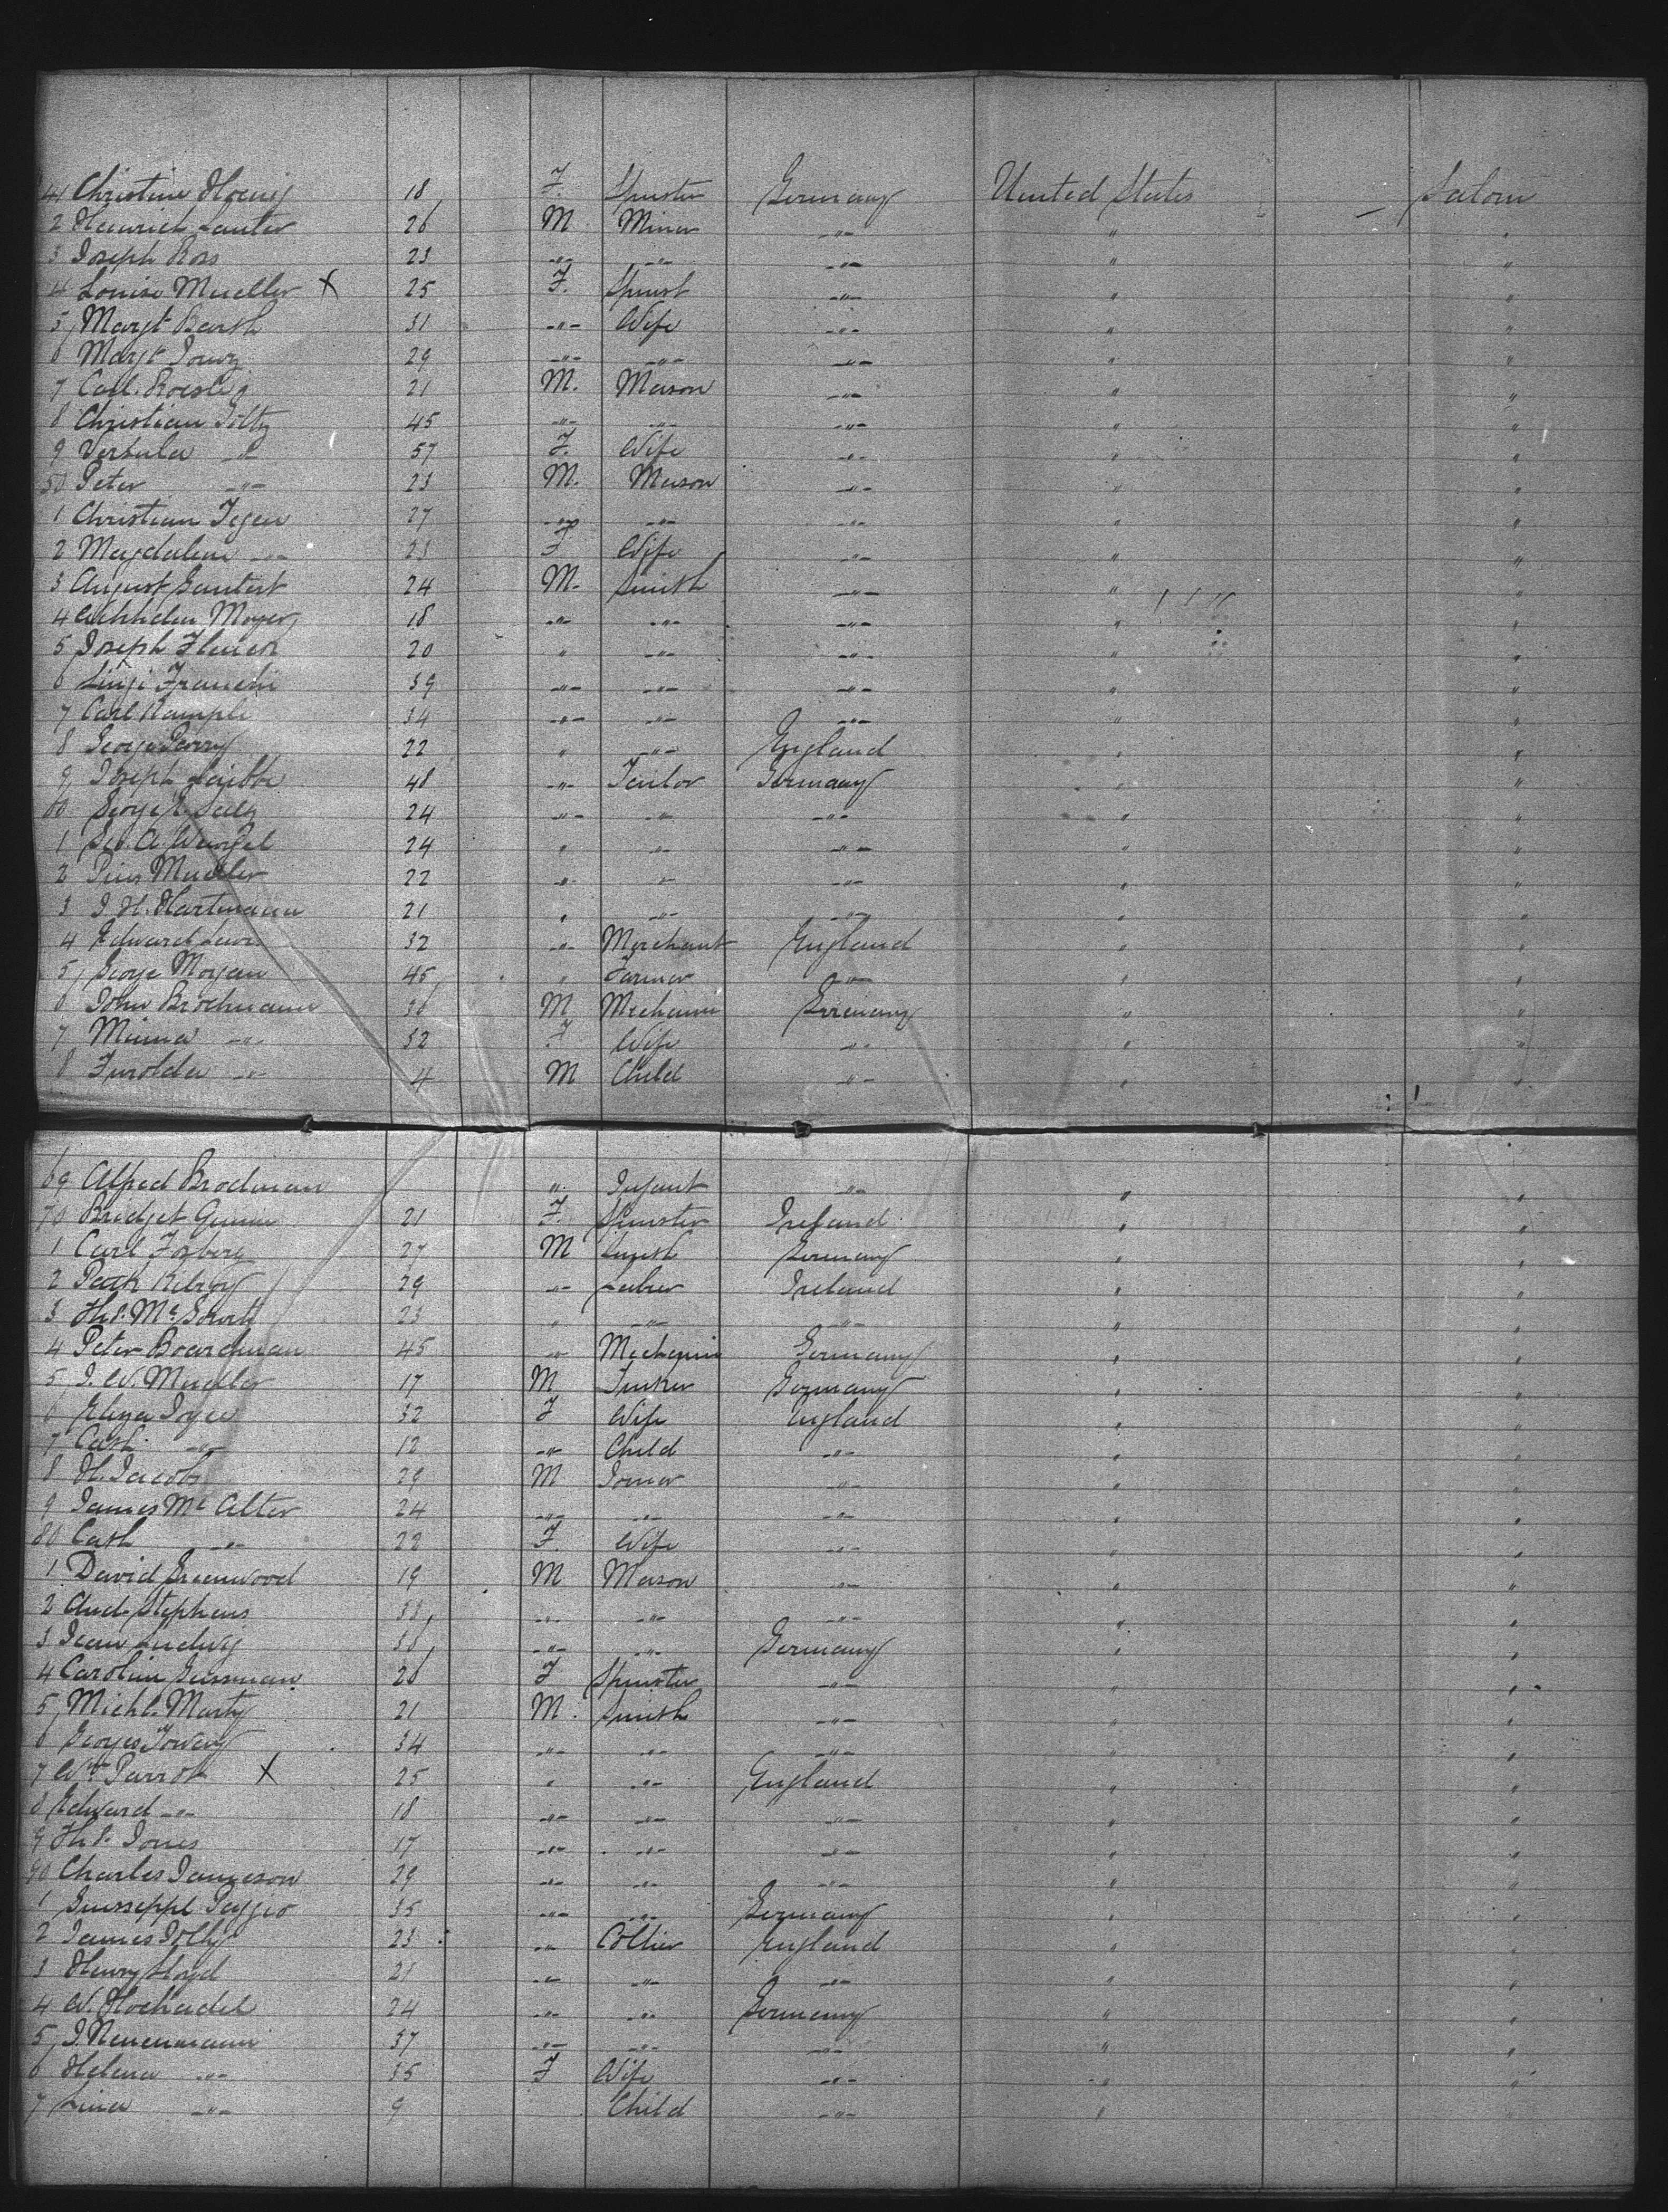 41 Christine Hoenig 18 F. Spinster Germany United States Saloon
2 Heinrich Lauter 26 M Miner -"- " "
3 Joseph Ross 23 -"- -"- -"- " "
4 Louise Mueller X 25 F. Spinst -"- " "
5 Margt Barth 31 -"- Wife -"- " "
6 Margt 29 -"- -"- -"- " "
7 Carl 21 M. Mason -"- " "
8 Christian Foltz 45 -"- -"- -"- " "
9 Versula -"- 57 F. Wife -"- " "
50 Peter -"- 23 M. Mason -"- " "
1 Christian Jegen 27 -"- -"- -"- " "
2 Magdalene -"- 23 F Wife -"- " "
3 August Gantert 24 M. Smith -"- " "
4 Wilhelm Meyer 18 -"- -"- -"- " "
5 Joseph 20 " -"- -"- " "
6 Luigi Francini 39 -"- -"- -"- " "
7 Carl Kample 34 -"- -"- -"- " "
8 George Parry 22 " -"- England " "
9 Joseph 48 -"- Tailor Germany " "
60 George 24 -"- -"- -"- " "
1 Geo. A. Wenzel 24 " -"- -"- " "
2 Pius Mueller 22 -"- -"- -"- " "
3 J. H. Hartmann 21 " -"- -"- " "
4 Edward Lewis 32 -"- Merchant England " "
5 George Morgan 45 " Farmer -"- " "
6 John Brodmann 36 M Mechanic Germany " "
7 Minna -"- 32 F Wife -"- " "
8 -"- 4 M Child -"- " "
69 Alfred Brodman " Infant -"- " "
70 Bridget Quinn 21 F. Spinster Ireland " "
1 Carl Forberg 27 M Smith Germany " "
2 Patk Kilroy 29 -"- Labrer Ireland " "
3 Ths. Mc 23 " -"- -"- " "
4 Peter Boardman 45 -"- Mechanic Germany " "
5 J. W. Mueller 17 M Germany " "
6 Eliza Joyce 32 F Wife England " "
7 Cath. -"- 12 -"- Child -"- " "
8 H. Jacobs 29 M Joiner -"- " "
9 James Mc Alter 24 -"- -"- -"- " "
80 Cath -"- 22 F. Wife -"- " "
1 David Greenwood 19 M Mason -"- " "
2 And. Stephens 33 -"- -"- -"- " "
3 Jean Ludwig 36 -"- -"- Germany " "
4 Carolin Gussman 26 F Spinster -"- " "
5 Michl. Marty 21 M. Smith -"- " "
6 Georges 34 -"- -"- -"- " "
7 Wm Parrot X 25 " -"- England " "
8 Edward -"- 18 -"- -"- -"- " "
9 Ths. Jones 17 -"- -"- -"- " "
90 Charles Jameson 29 -"- -"- -"- " "
1 Guisseppe Poggio 35 -"- -"- Germany " "
2 James Jolly 23 -"- Collier England " "
3 Henry Lloyd 21 -"- -"- -"- " "
4 W. Hochadel 24 -"- -"- Germany " "
5 J. Neuenmann 37 -"- -"- -"- " "
6 Helena -"- 35 F Wife -"- " "
7 Lina -"- 9 Child -"- " "